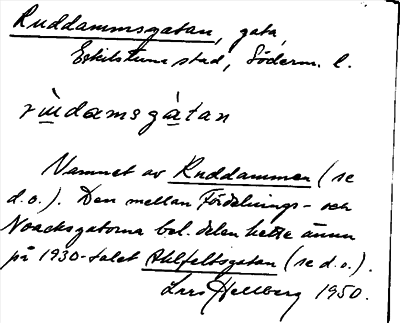 Ruddammsgatan, gata,
Eskilstuna stad, Söderm. l.
rùdamsgàtan
Namnet av Ruddammen (se
d.o.). Den mellan Fördelnings- och
Noacksgatorna bel. delen hette ännu
på 1930-talet Ahlfeltsgatan (se d.o.).
Lars Hellberg 1950.